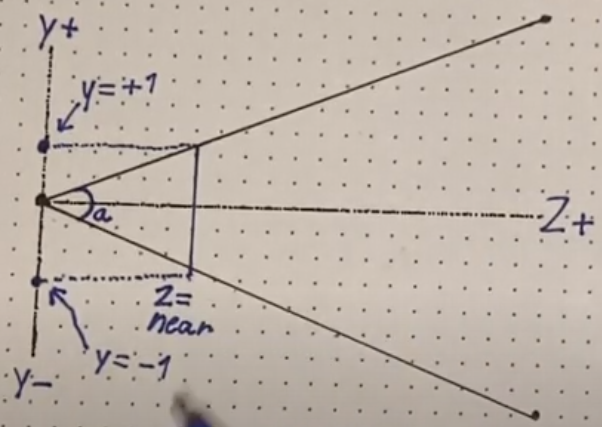 y+
y=+1
a
Z+
Z=
near
y=-1
y-